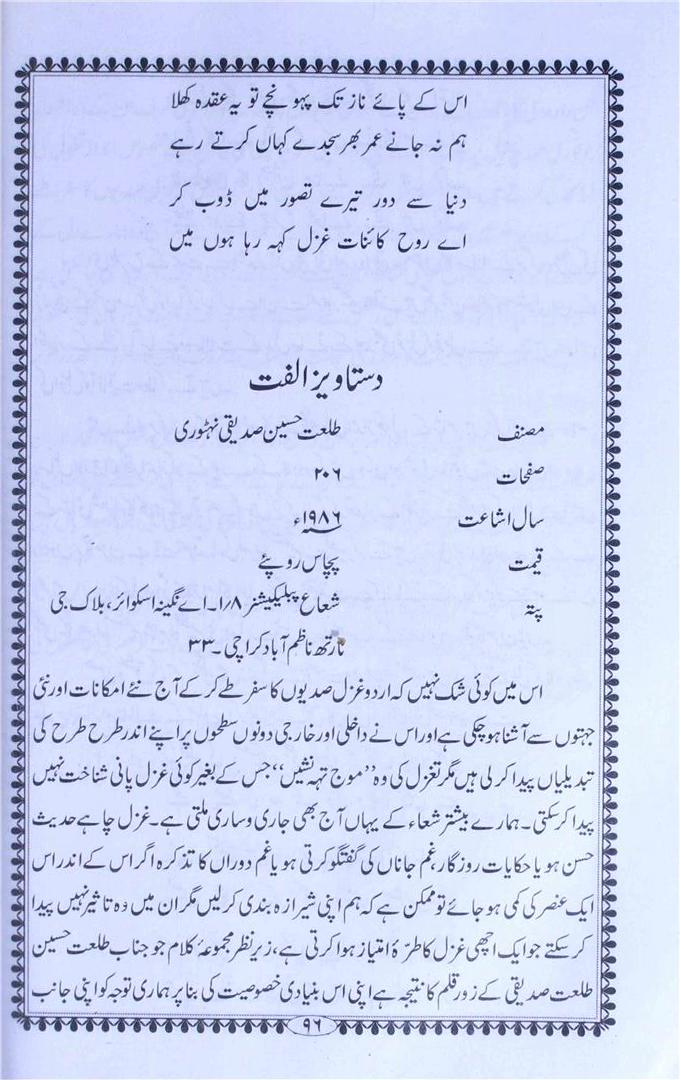 اس کے پائے ناز تک پہونچے تو یہ عقدہ کھلا
ہم نہ جانے عمر بھر سجدے کہاں کرتے رہے
دنیا سے دور تیرے تصور میں ڈوب کر
اے روح کائنات غزل کہہ رہا ہوں میں
دستاویز الفت
مصنف طلعت حسین صدیقی نہٹوری
صفحات ۲۰۶
سال اشاعت ۱۹۸۶ء
قیمت پچاس روپئے
پتہ شعاع پبلیکیشنز ۱/۸۔اے نگینہ اسکوائر، بلاک جی
نارتھ ناظم آباد کراچی۔۳۳
اس میں کوئی شک نہیں کہ اردو غزل صدیوں کا سفر طے کر کے آج نئے امکانات اور نئی
جہتوں سے آشنا ہو چکی ہے اور اس نے داخلی اور خارجی دونوں سطحوں پر اپنے اندر طرح طرح کی
تبدیلیاں پیدا کر لی ہیں مگر تغزل کی وہ ’’موج تہہ نشیں‘‘ جس کے بغیر کوئی غزل پانی شناخت نہیں
پیدا کر سکتی۔ ہمارے بیشتر شعاء کے یہاں آج بھی جاری و ساری ملتی ہے۔ غزل چاہے حدیث
حسن ہو یا حکایات روزگار، غم جاناں کی گفتگو کرتی ہو یا غم دوراں کا تذکرہ اگر اس کے اندر اس
ایک عنصر کی کمی ہو جائے تو ممکن ہے کہ ہم اپنی شیرازہ بندی کر لیں مگر ان میں وہ تاثیر نہیں پیدا
کر سکتے جو ایک اچھی غزل کا طرّۂ امتیاز ہوا کرتی ہے، زیر نظر مجموعۂ کلام جو جناب طلعت حسین
طلعت صدیقی کے زور قلم کا نتیجہ ہے اپنی اس بنیادی خصوصیت کی بنا پر ہماری توجہ کو اپنی جانب
۹۶